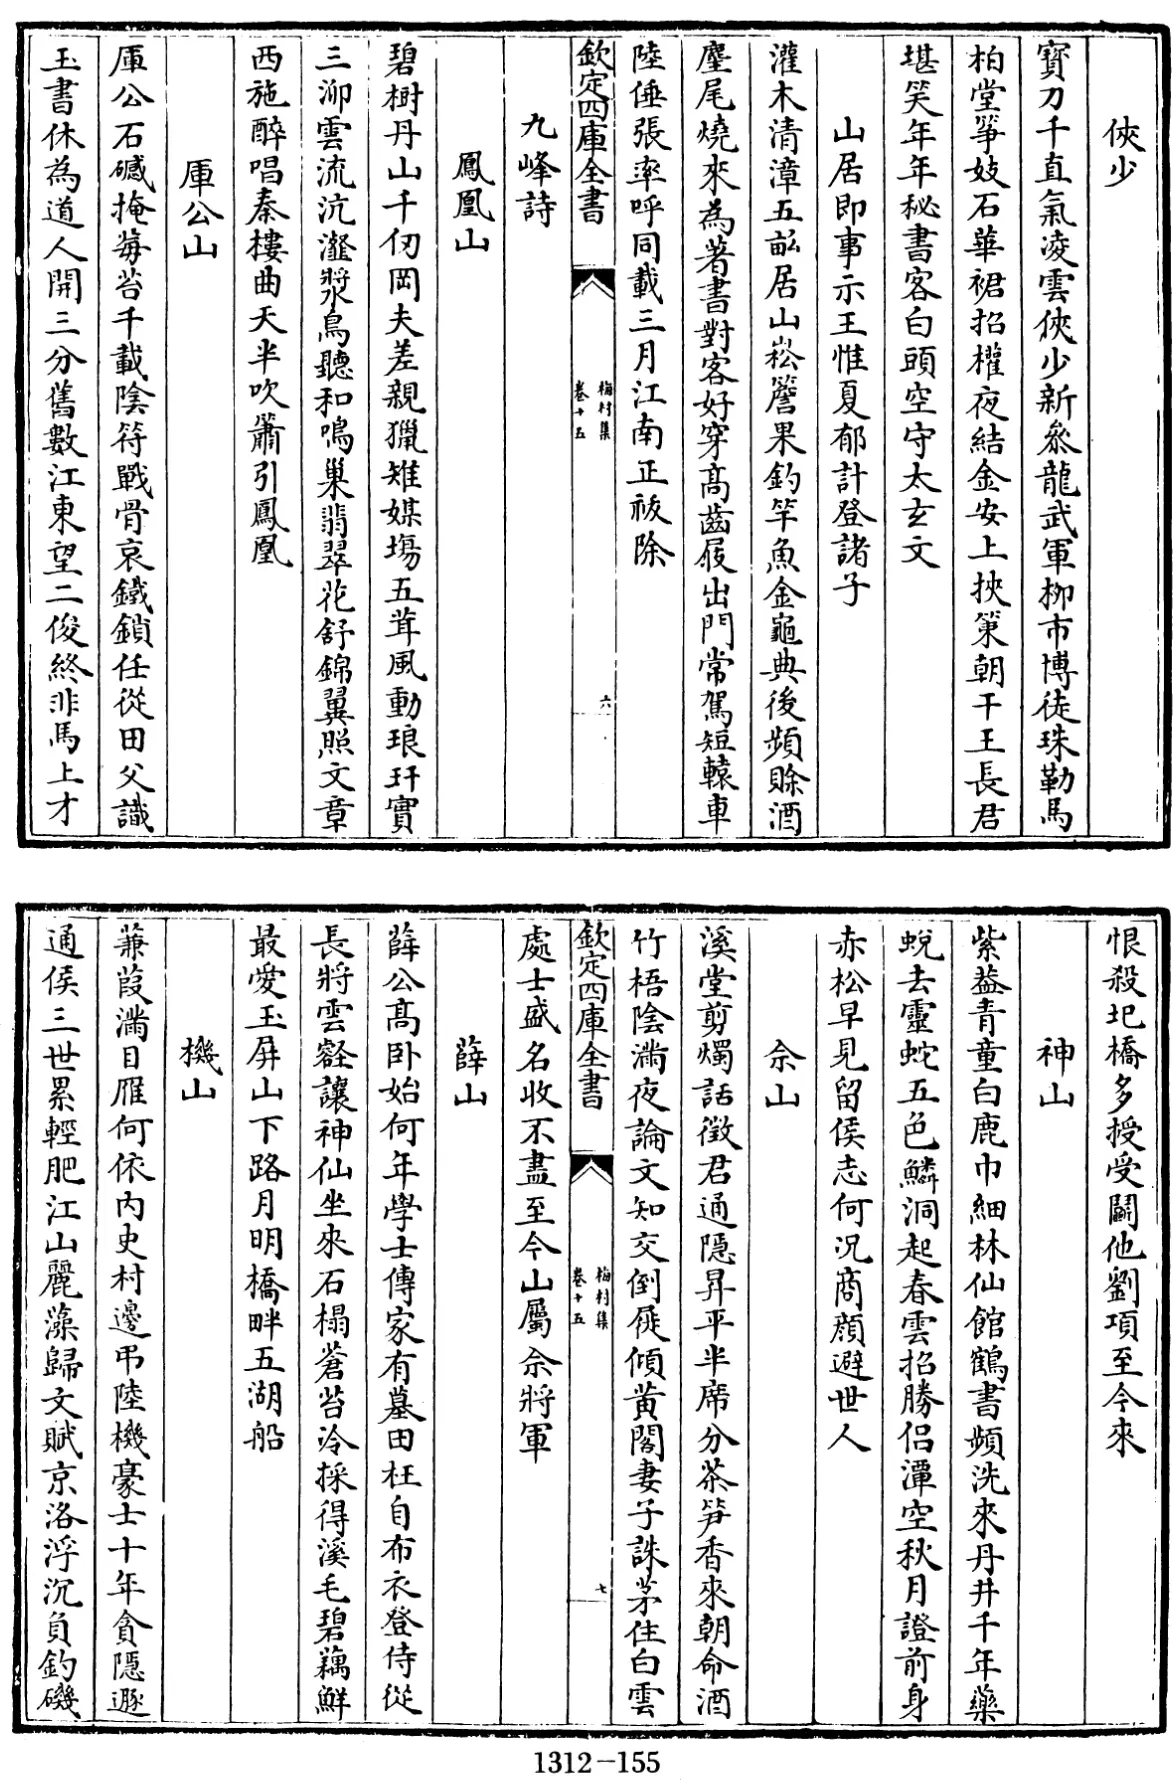 俠少
寶刀千直氣凌雲俠少新叅龍武軍柳市博徒珠勒馬
柏堂箏妓石華裙招權夜結金安上挾策朝干王長君
堪笑年年秘書客白頭空守太玄文
山居即事示王惟夏郁計登諸子
灌木清漳五畝居山崧簷果釣竿魚金龜典後頻賒酒
麈尾燒來為著書對客好穿高齒屐出門常駕短轅車
陸倕張率呼同載三月江南正祓除
欽定四庫全書
梅村集
卷十五
六
九峰詩
鳳凰山
碧樹丹山千仞岡夫差親獵雉媒塲五茸風動琅玕實
三泖雲流沆瀣漿鳥聽和鳴巢翡翠花舒錦翼照文章
西施醉唱秦樓曲天半吹簫引鳳凰
厙公山
厙公石礆掩莓苔千載陰符戰骨哀鐵鎖任從田父識
玉書休為道人開三分舊數江東望二俊終非馬上才
恨殺圯橋多授受鬭他劉項至今來
神山
紫蓋青童白鹿巾細林仙館鶴書頻洗來丹井千年藥
蛻去靈蛇五色鱗洞起春雲招勝侣潭空秋月證前身
赤松早見留侯志何况商顔避世人
佘山
溪堂剪燭話徵君通隱昇平半席分茶筍香來朝命酒
竹梧陰滿夜論文知交倒屣傾黄閣妻子誅茅住白雲
欽定四庫全書
梅村集
卷十五
七
處士盛名收不盡至今山屬佘將軍
薛山
薛公高卧始何年學士傳家有墓田枉自布衣登侍從
長將雲壑讓神仙坐來石榻蒼苔冷採得溪毛碧藕鮮
最愛玉屏山下路月明橋畔五湖船
機山
蒹葭滿目雁何依内史村邊弔陸機豪士十年貪隱遯
通侯三世累輕肥江山麗藻歸文賦京洛浮沉負釣磯
1312-155